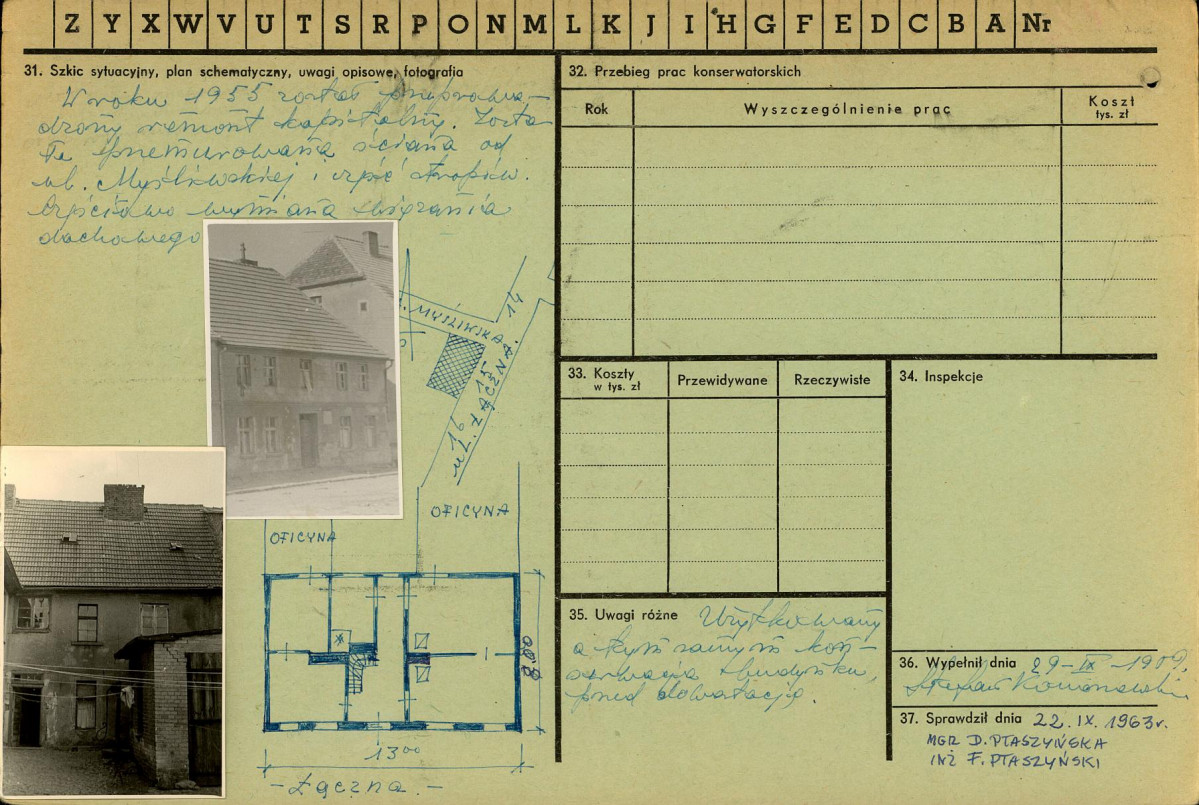 Z Y X W V U T S R P O N M L K J I H G F E D C B A Nr
31. Szkic sytuacyjny, plan schematyczny, uwagi opisowe, fotografia
W roku 1955 został przeprowa-
dzony remont kapitalny. Zosta-
ła przemurowana ściana od
ul. Myśliwskiej i część stropów.
Częściowo wymiana wiązania
dachowego
MYŚLIWSKA
14
15
16
UL. ŁĄCZNA.
OFICYNA
OFICYNA
8.00
13⁰⁰
- Łączna. -
32. Przebieg prac konserwatorskich
Rok
Wyszczególnienie prac
Koszt
tys. zł
33. Koszty
w tys. zł
Przewidywane
Rzeczywiste
34. Inspekcje
35. Uwagi różne
Użytkowany
a tym samym kon-
serwacja budynku,
przed dewastacją.
36. Wypełnił dnia
29-IX-1959.
37. Sprawdził dnia 22.IX.1963r.
MGR D. PTASZYŃSKA
INŻ F. PTASZYŃSKI